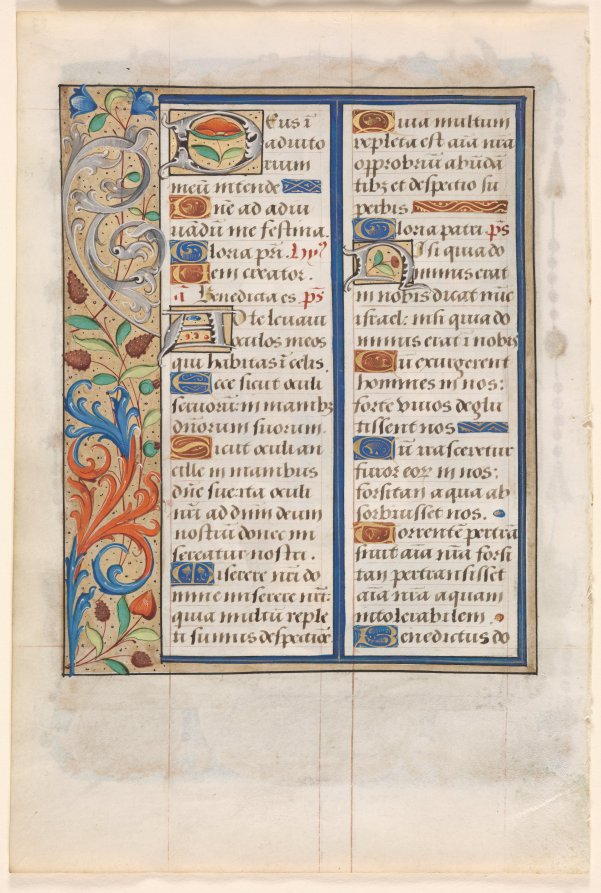 Deus ī
adiuto
rium
meū intende
Dne ad adiu
uādū me festina.
Gloria pri. Hyꝰ
Uem creator.
a Benedicta es. ps
Ad te leuaui
oculos meos
qui habitas ī celis.
Ecce sicut oculi
seruorū: in manibꝫ
dn̄orum suorum.
Sicut oculi an
cille in manibus
dn̄e sue: ita oculi
nr̄i ad dn̄m deum
nostrū donec mi
sereatur nostri.
Miserere nr̄i do
mine miserere nr̄i:
quia multū reple
ti sumus despectiōe
Quia multum
repleta est aīa nr̄a
opprobriū abūdā
tibꝫ et despectio su
perbis
Gloria patri. ps
Nisi quia do
minus erat
in nobis dicat nūc
israel: nisi quia do
minus erat ī nobis
Cū exurgerent
homines in nos:
forte viuos deglu
tissent nos
Cū irasceretur
furor eoꝝ in nos:
forsitan aqua ab
sorbuisset nos.
Torrentē pertrā
siuit aīa nr̄a forsi
tan pertransisset
aīa nr̄a aquam
intolerabilem.
Benedictus do